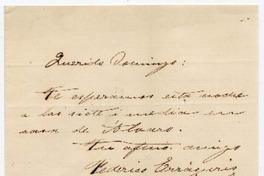 Querido Domingo:
Te esperamos esta noche
a las siete i media en
casa de Alvaro.
Tu afmo. amigo
Federico Errázuriz